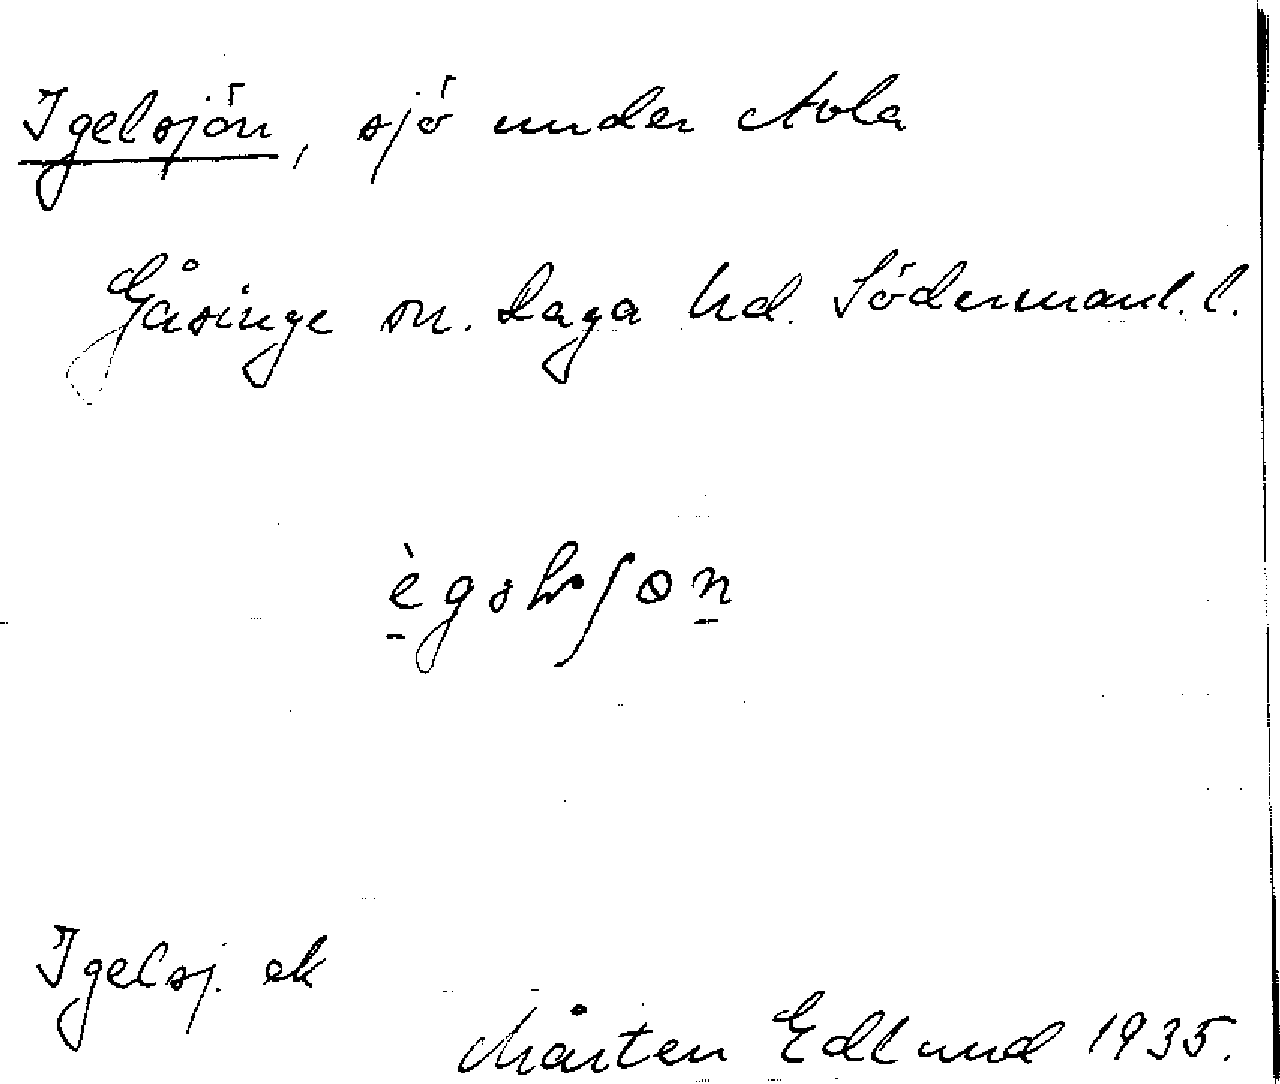 Igelsjön, sjö under Avla
Gåsinge sn. Daga hd. Södermanl. l.
Igelsj. ek
Mårten Edlund 1935.